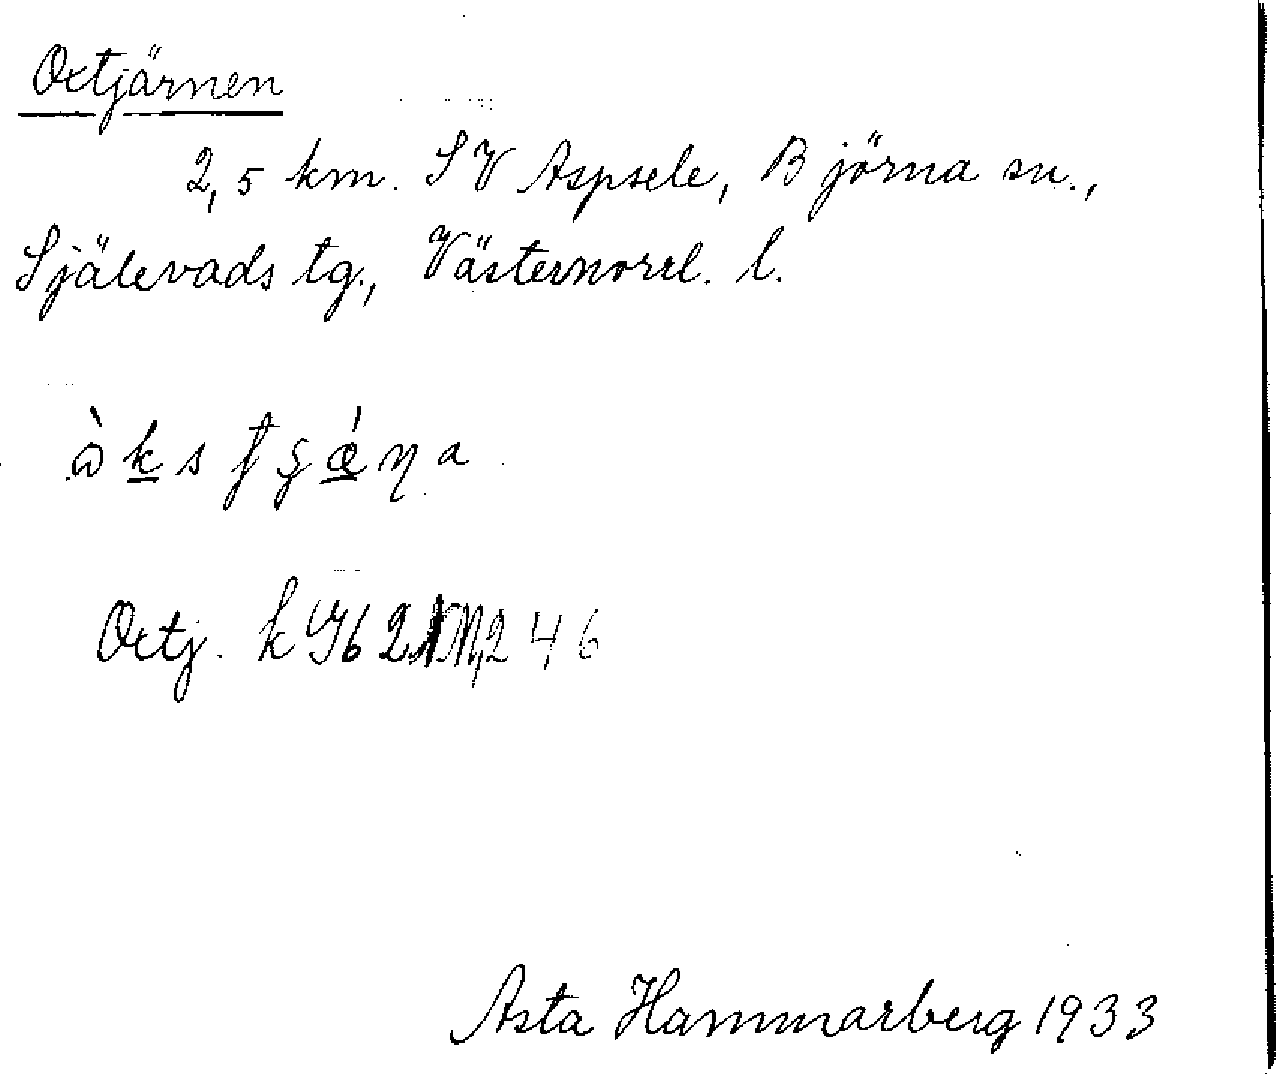 Oxtjärnen
2,5 km. SV Aspsele, Björna sn.,
Själevads tg., Västernorrl. l.
Oxtj. k 246
Asta Hammarberg 1933